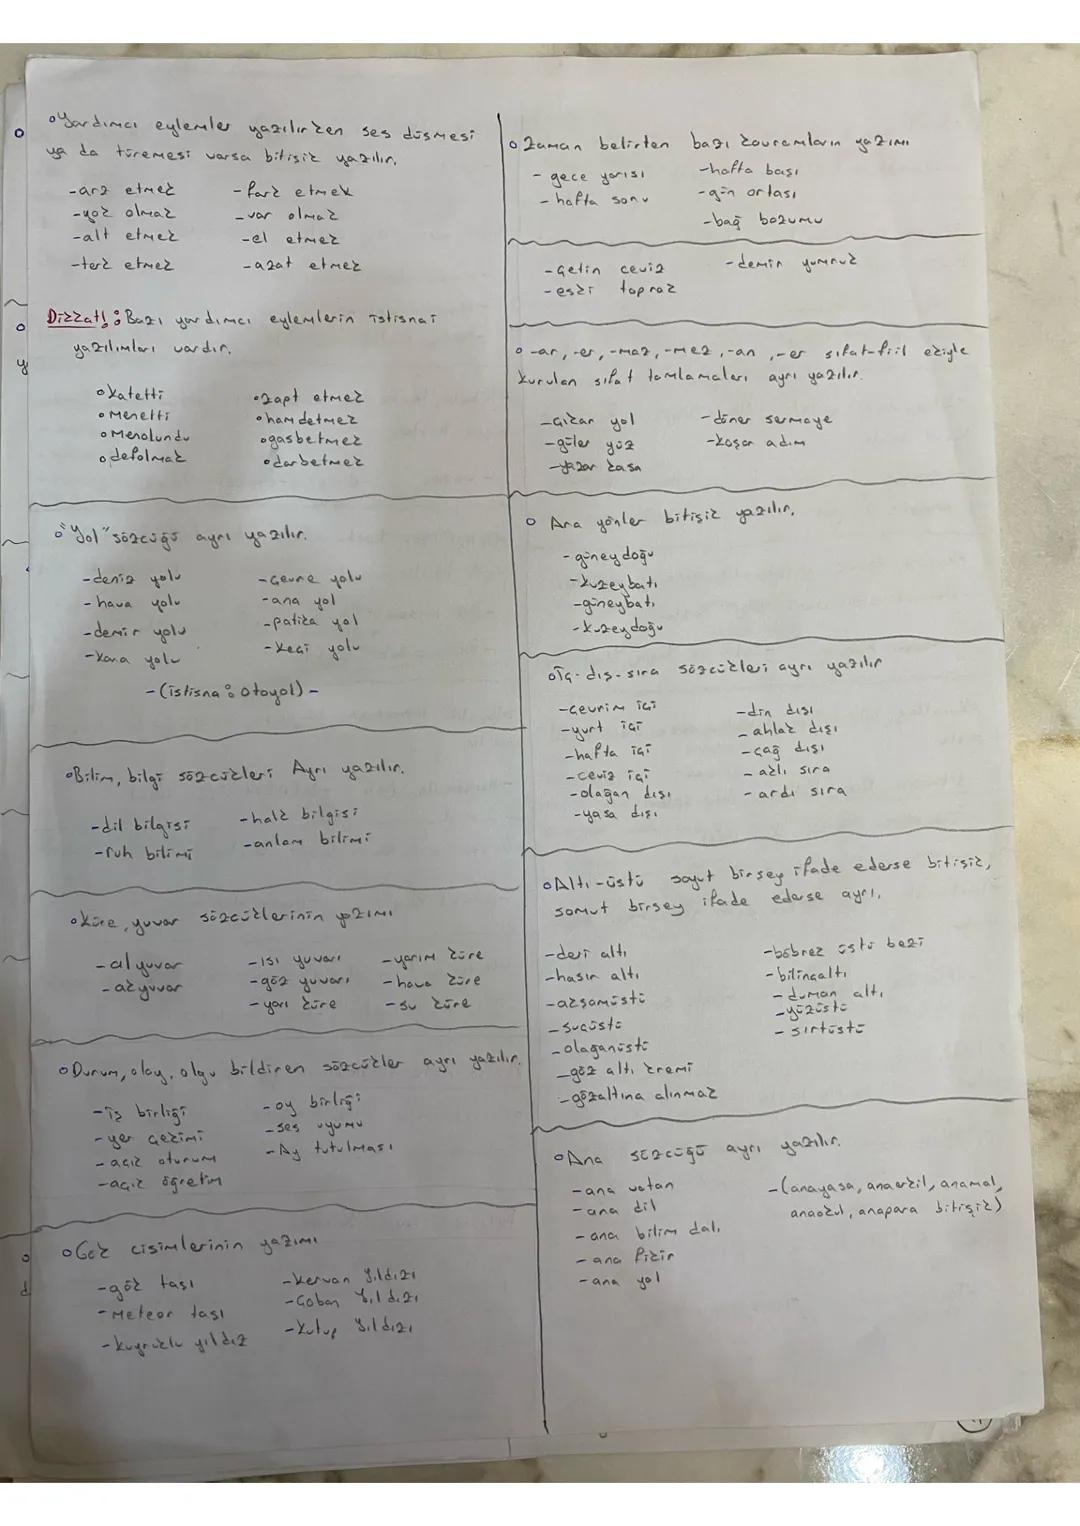 Yardımcı eylemler yazılırken ses düşmesi
ya da türemesi varsa bitişik yazılır.
-arz etmek
-yok olmak
-alt etmek
-terk etmek
-farz etmek
-var olmak
-el etmek
-azat etmek
Dikkat!: Bazı yardımcı eylemlerin istisnai
yazılımları vardır.
katetti
menetti
menolundu
defolmak
zapt etmek
hamdetmek
gasbetmek
darbetmek
"Yol" sözcüğü ayrı yazılır.
-deniz yolu
-hava yolu
-demir yolu
-kara yolu
-çevre yolu
-ana yol
-patika yol
-keçi yolu
-(istisna: otoyol)-
Bilim, bilgi sözcükleri Ayrı yazılır.
-dil bilgisi
-ruh bilimi
-halk bilgisi
-anlam bilimi
Küre, yuvar sözcüklerinin yazımı
-alyuvar
-akyuvar
-ısı yuvarı
-göz yuvarı
-yarı küre
-yarım küre
-hava küre
-su küre
Durum, olay, olgu bildiren sözcükler ayrı yazılır.
-iş birliği
-yer çekimi
-açık oturum
-açık öğretim
-oy birliği
-ses uyumu
-Ay tutulması
Gök cisimlerinin yazımı
-gök taşı
-Meteor taşı
-kuyruklu yıldız
-Kervan Yıldızı
-Çoban Yıldızı
-Kutup Yıldızı
Zaman belirten bazı kavramların yazımı
-gece yarısı
-hafta sonu
-hafta başı
-gün ortası
-bağ bozumu
-çetin ceviz
-eski toprak
-demir yumruk
-ar, -er, -maz, -mez, -an, -er sıfat-fiil ekiyle
kurulan sıfat tamlamaları ayrı yazılır.
-çıkar yol
-güler yüz
-yazar kasa
-döner sermaye
-koşar adım
Ara yönler bitişik yazılır.
-güneydoğu
-kuzeybatı
-güneybatı
-kuzeydoğu
İç-dış-sıra sözcükleri ayrı yazılır
-çevrim içi
-yurt içi
-hafta içi
-ceviz içi
-olağan dışı
-yasa dışı
-din dışı
-ahlak dışı
-çağ dışı
-aklı sıra
-ardı sıra
Altı-üstü soyut birşey ifade ederse bitişik,
somut birşey ifade ederse ayrı,
-deri altı
-hasır altı
-akşamüstü
-suçüstü
-olağanüstü
-göz altı kremi
-gözaltına alınmak
-böbrek üstü bezi
-bilinçaltı
-duman altı
-yüzüstü
-sırtüstü
Ana sözcüğü ayrı yazılır.
-ana vatan
-ana dil
-ana bilim dalı
-ana fikir
-ana yol
-(anayasa, anaerkil, anamal,
anaokul, anapara bitişik)